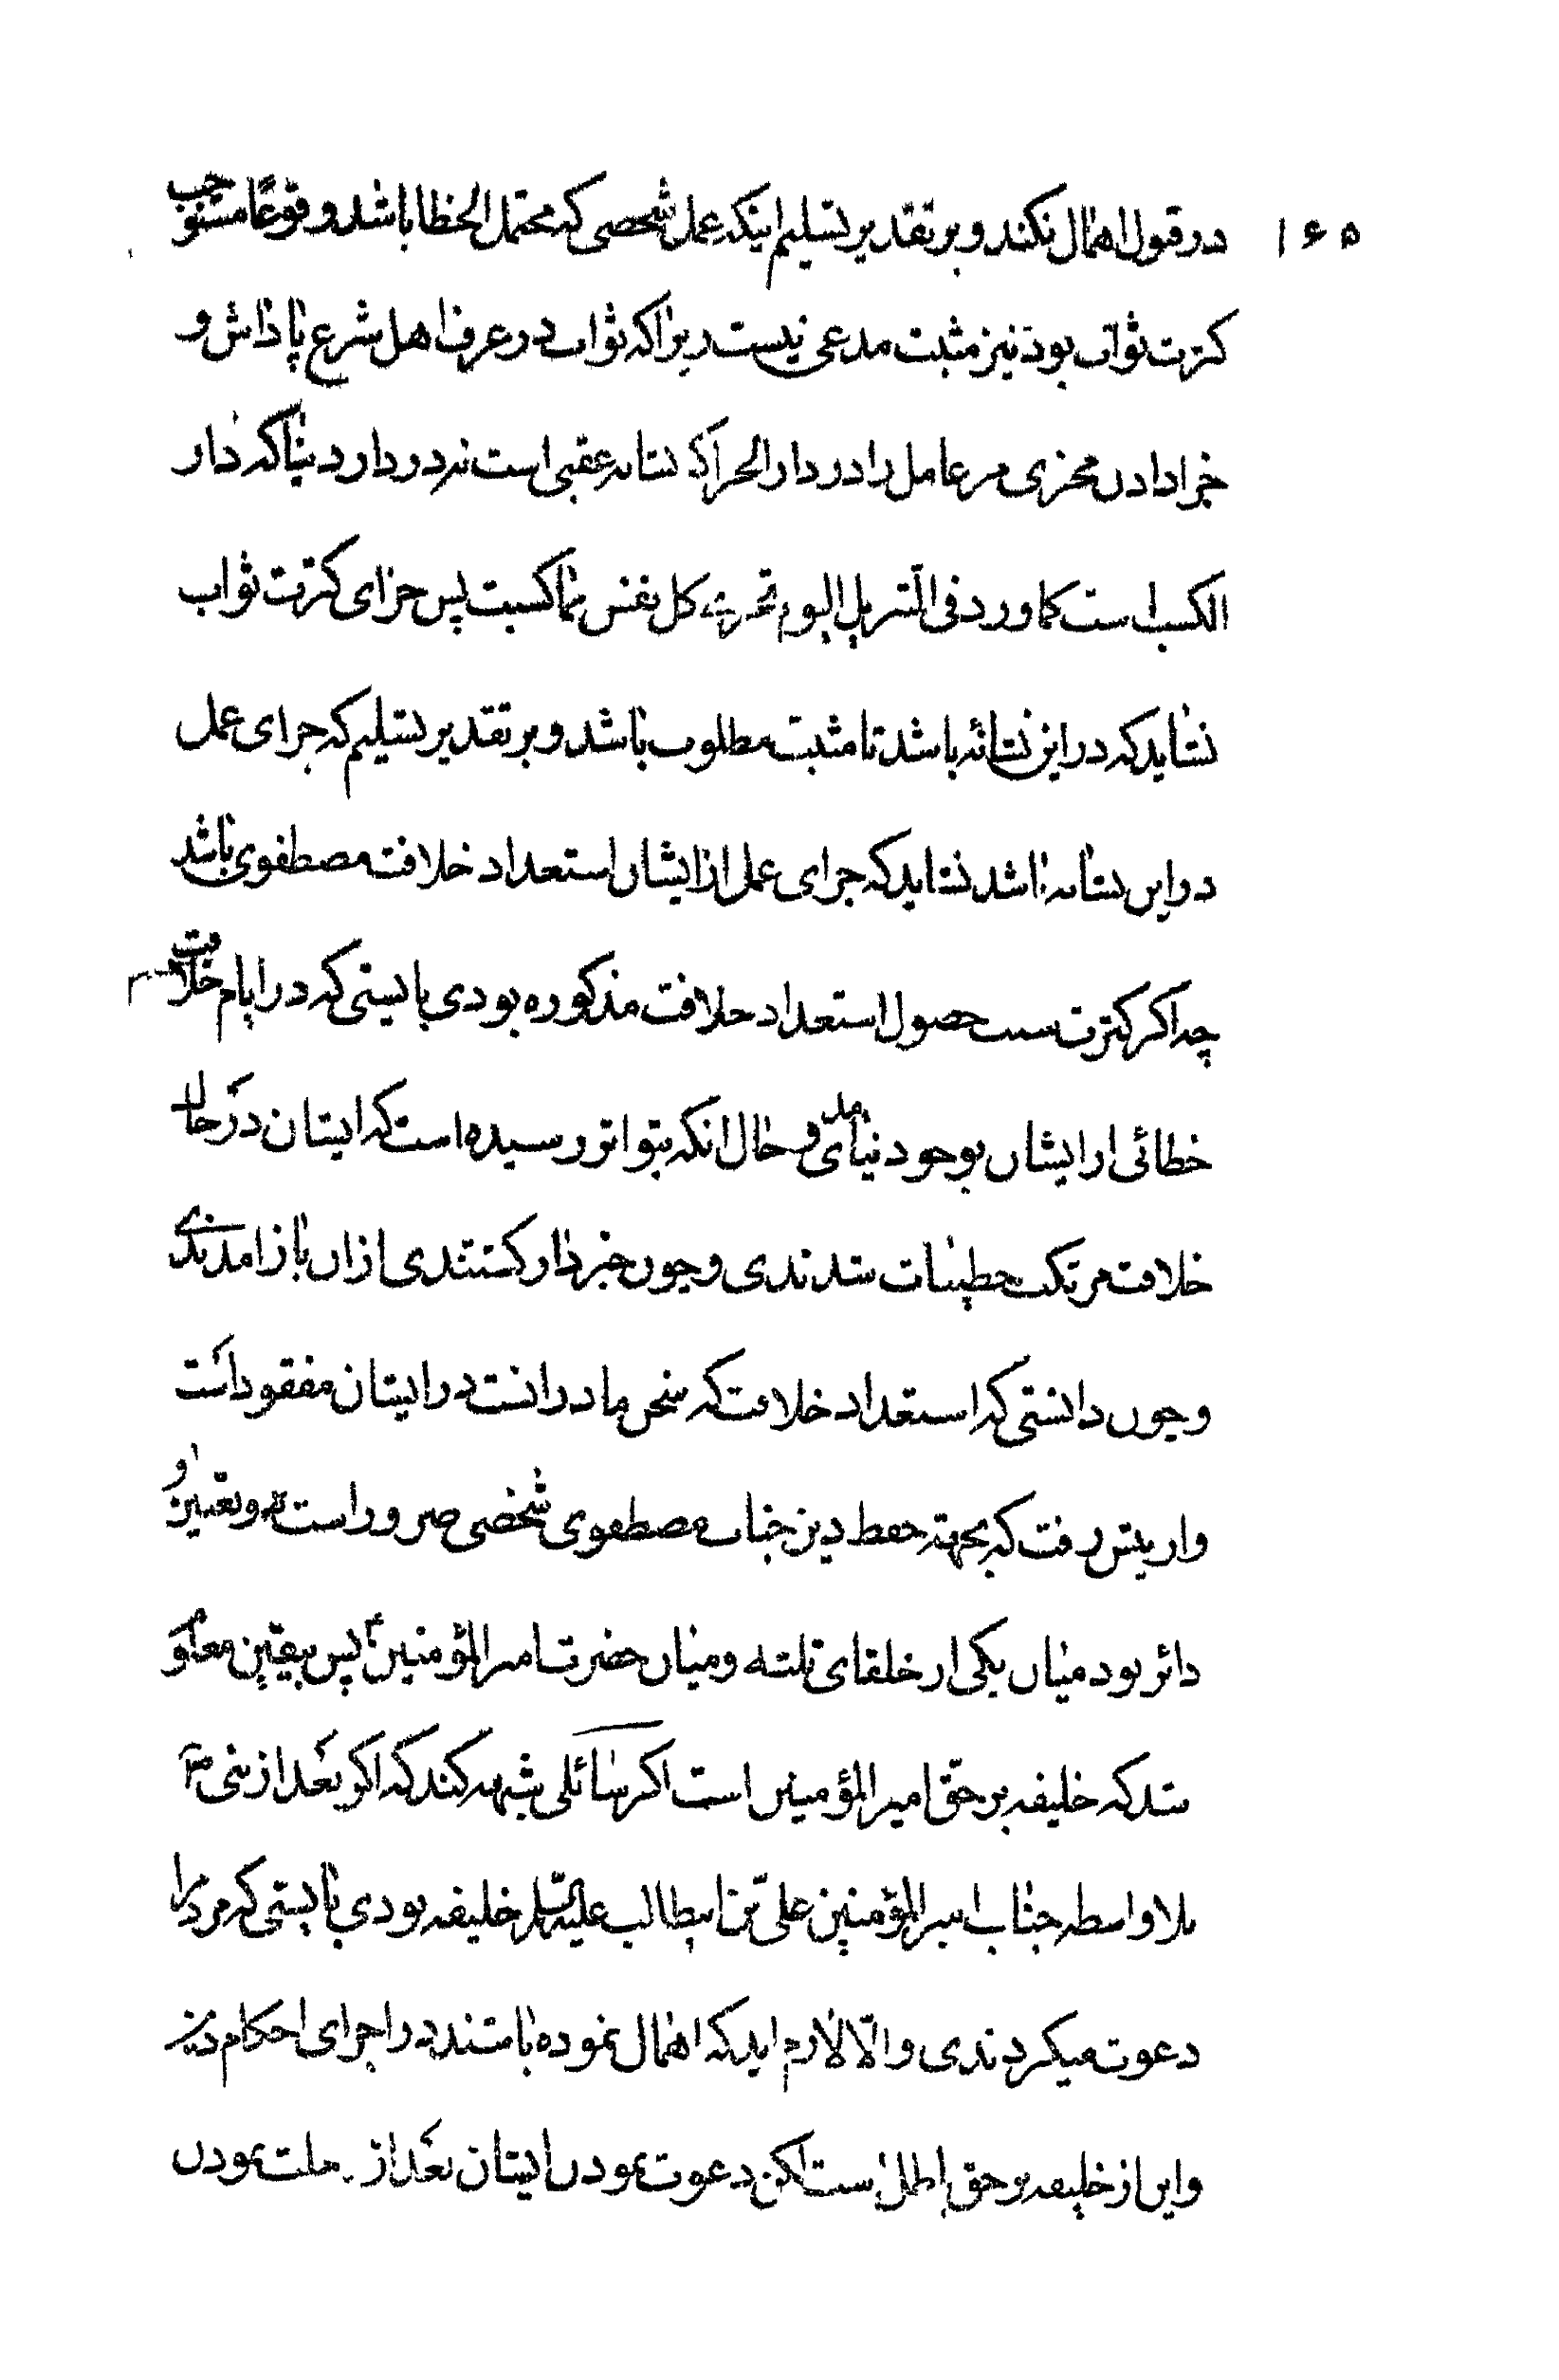 ۱۶۵
در قول اهمال نكند و بر تقدير تسليم اينكه عمل شخصى كه محتمل الخطا باشد وقوعًا مستوجب
كثرت ثواب بود نيز مثبت مدعى نيست زيرا كه ثواب در عرف اهل شرع پاداش و
جزا دادن مجزى مر عامل را در دار الجزا كه نشاه عقبى است نه در دار دنيا كه دار
الكسب است كما ورد فى التنزيل اليوم تجزى كل نفس بما كسبت پس جزاى كثرت ثواب
نشايد كه در اين نشائه باشد تا مثبت مطلوب باشد و بر تقدير تسليم كه جزاى عمل
در اين نشاه باشد نشايد كه جزاى عمل از ايشان استعداد خلافت مصطفوى باشد
چه اكر كثرت سبب حصول استعداد خلافت مذكوره بودى بايستى كه در ايام خلافت
خطائى از ايشان بوجود نيامدى و حال انكه بتواتر رسيده است كه ايشان در حال
خلافت مرتكب خطيئات شدندى و چون خبردار كشتندى از ان باز امدندى
و چون دانستى كه استعداد خلافت كه سخن ما در انست در ايشان مفقود است
و از پيش رفت كه بجهته حفظ دين جناب مصطفوى شخصى ضرور است و تعيين او
دائر بود ميان يكى از خلفاى ثلثه و ميان حضرت امير المؤمنين ع پس بيقين معلوم
شد كه خليفه بر حقّ امير المؤمنين است اكر سائلى شبهه كند كه اكر بعد از نبى ص
بلاواسطه جناب امير المؤمنين على بن ابيطالب عليه السلام خليفه بودى بايستى كه مردم را
دعوت ميكردندى و الّا لازم ايد كه اهمال نموده باشند در اجراى احكام دين
و اين از خليفه بر حق باطل است لكن دعوت نمودن ايشان بعد از رحلت نمودن